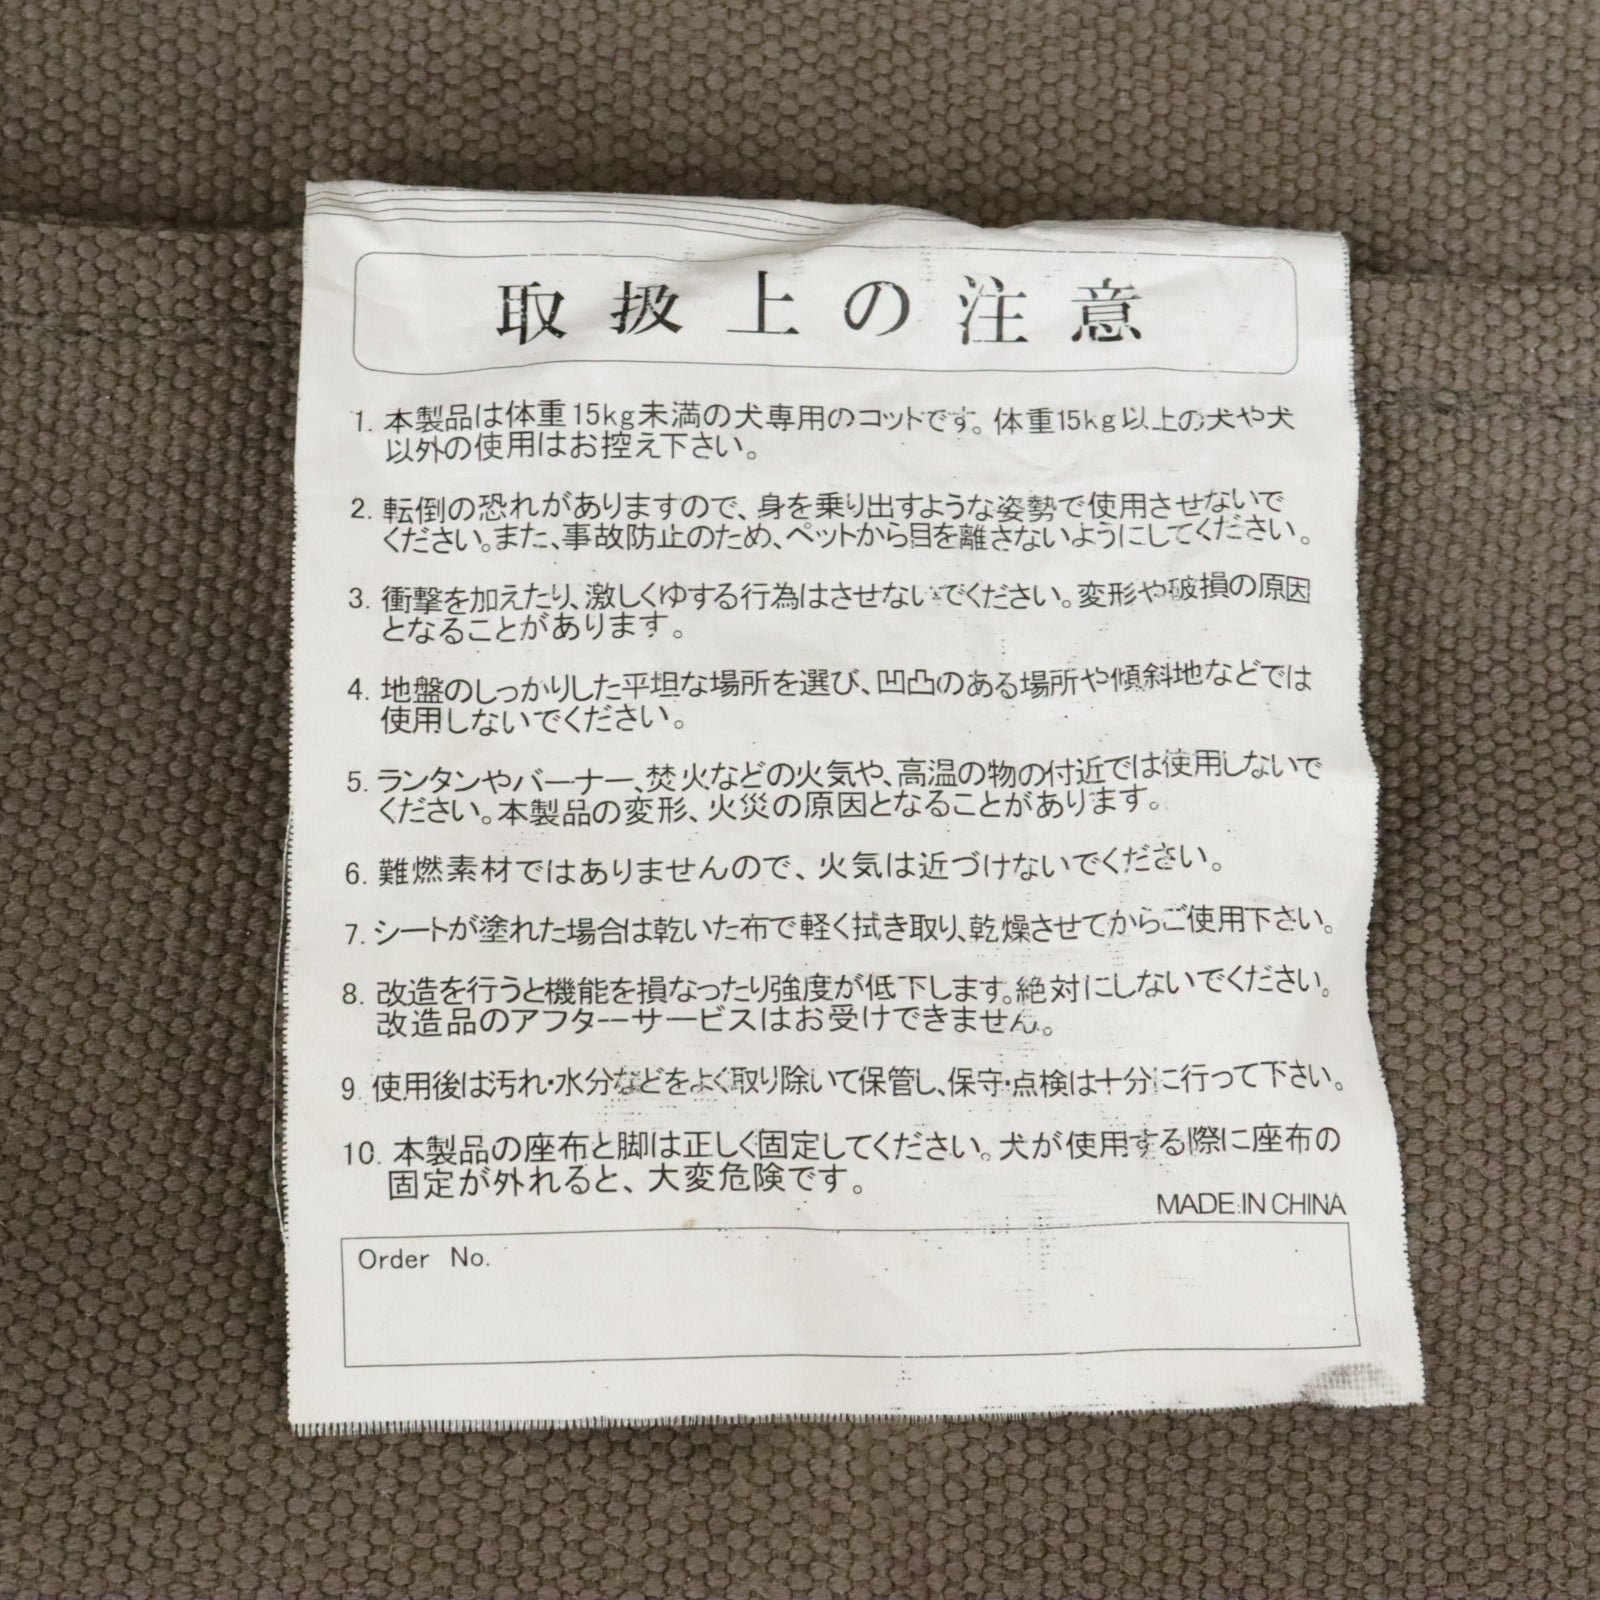 取扱上の注意
1. 本製品は体重15kg未満の犬専用のコットです。体重15kg以上の犬や犬
以外の使用はお控え下さい。
2. 転倒の恐れがありますので、身を乗り出すような姿勢で使用させないで
ください。また、事故防止のため、ペットから目を離さないようにしてください。
3. 衝撃を加えたり、激しくゆする行為はさせないでください。変形や破損の原因
となることがあります。
4. 地盤のしっかりした平坦な場所を選び、凹凸のある場所や傾斜地などでは
使用しないでください。
5. ランタンやバーナー、焚火などの火気や、高温の物の付近では使用しないで
ください。本製品の変形、火災の原因となることがあります。
6. 難燃素材ではありませんので、火気は近づけないでください。
7. シートが塗れた場合は乾いた布で軽く拭き取り、乾燥させてからご使用下さい。
8. 改造を行うと機能を損なったり強度が低下します。絶対にしないでください。
改造品のアフターサービスはお受けできません。
9. 使用後は汚れ・水分などをよく取り除いて保管し、保守・点検は十分に行って下さい。
10. 本製品の座布と脚は正しく固定してください。犬が使用する際に座布の
固定が外れると、大変危険です。
MADE IN CHINA
Order No.